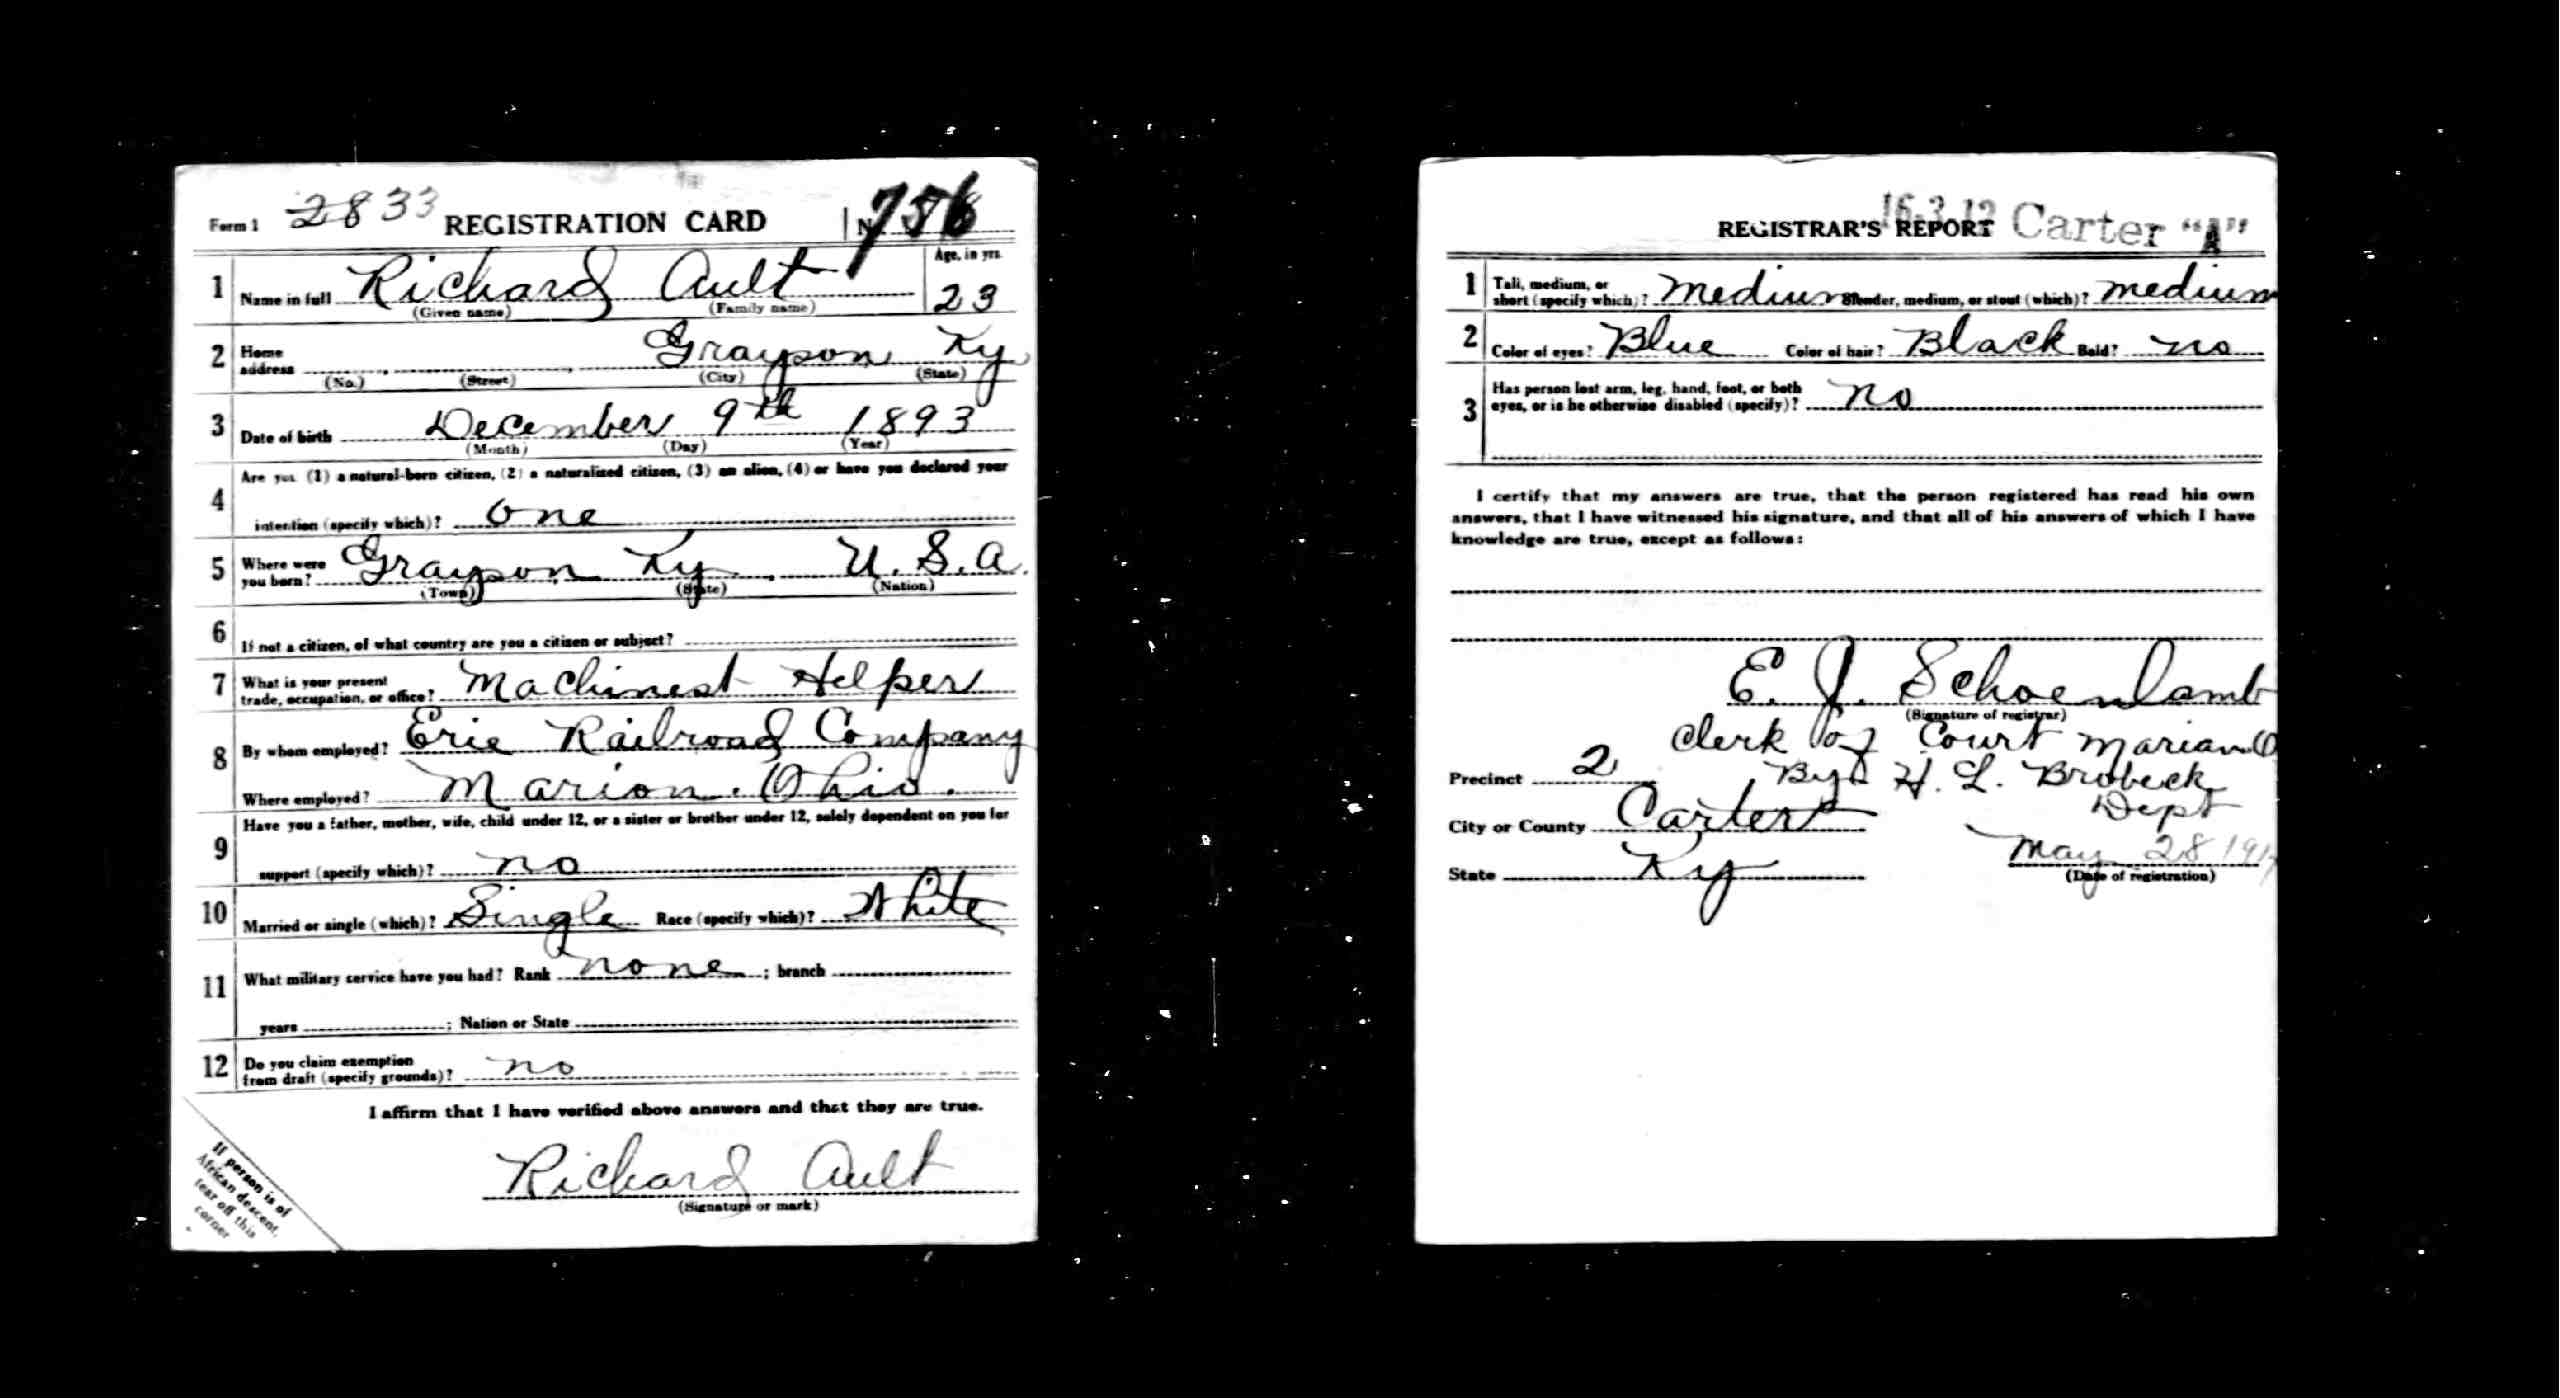 Form 1 2833 REGISTRATION CARD No. 756
1 Name in full Richard Ault Age, in yrs. 23
(Given name) (Family name)
2 Home address Grayson Ky
(No.) (Street) (City) (State)
3 Date of birth December 9th 1893
(Month) (Day) (Year)
4 Are you (1) a natural-born citizen, (2) a naturalized citizen, (3) an alien, (4) or have you declared your
intention (specify which)? One
5 Where were you born? Grayson Ky U.S.A.
(Town) (State) (Nation)
6 If not a citizen, of what country are you a citizen or subject?
7 What is your present trade, occupation, or office? Machinest Helper
8 By whom employed? Erie Railroad Company
Where employed? Marion. Ohio.
9 Have you a father, mother, wife, child under 12, or a sister or brother under 12, solely dependent on you for
support (specify which)? no
10 Married or single (which)? Single Race (specify which)? White
11 What military service have you had? Rank none ; branch
years ; Nation or State
12 Do you claim exemption from draft (specify grounds)? no
I affirm that I have verified above answers and that they are true.
Richard Ault
(Signature or mark)
If person is of
African descent,
tear off this
corner
REGISTRAR'S REPORT 16-3-12 Carter "A"
1 Tall, medium, or short (specify which)? Medium Slender, medium, or stout (which)? medium
2 Color of eyes? Blue Color of hair? Black Bald? no
3 Has person lost arm, leg, hand, foot, or both
eyes, or is he otherwise disabled (specify)? no
I certify that my answers are true, that the person registered has read his own
answers, that I have witnessed his signature, and that all of his answers of which I have
knowledge are true, except as follows:
E. J. Schoenlamb
(Signature of registrar)
Clerk of Court Marion O
Precinct 2 By H. L. Brobeck
Dept
City or County Carter
State Ky May 28 1917
(Date of registration)